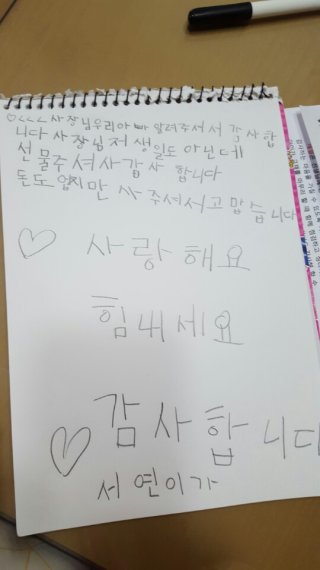 ♡<<< 사장님우리아빠 알려주셔서 감사합
니다 사장님저생일도 아닌데
선물주셔사감사합니다
돈도없지만 사주셔서고맙습니다
♡ 사랑해요
힘내세요
♡ 감사합니다
서연이가